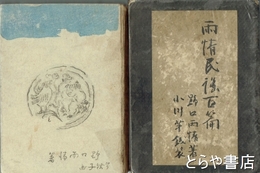 雨情民謡百篇
野口雨情著
小川芋銭装
野口雨情著
とらや書店